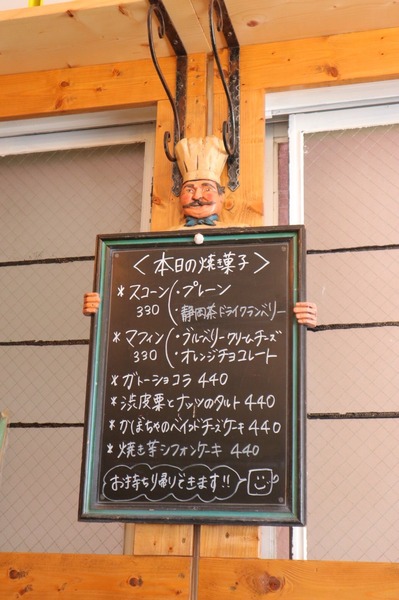 ＜本日の焼き菓子＞
＊スコーン 330
・プレーン
・静岡茶ドライクランベリー
＊マフィン 330
・ブルーベリークリームチーズ
・オレンジチョコレート
＊ガトーショコラ 440
＊渋皮栗とナッツのタルト 440
＊かぼちゃのベイクドチーズケーキ 440
＊焼き芋シフォンケーキ 440
お持ち帰りできます!!